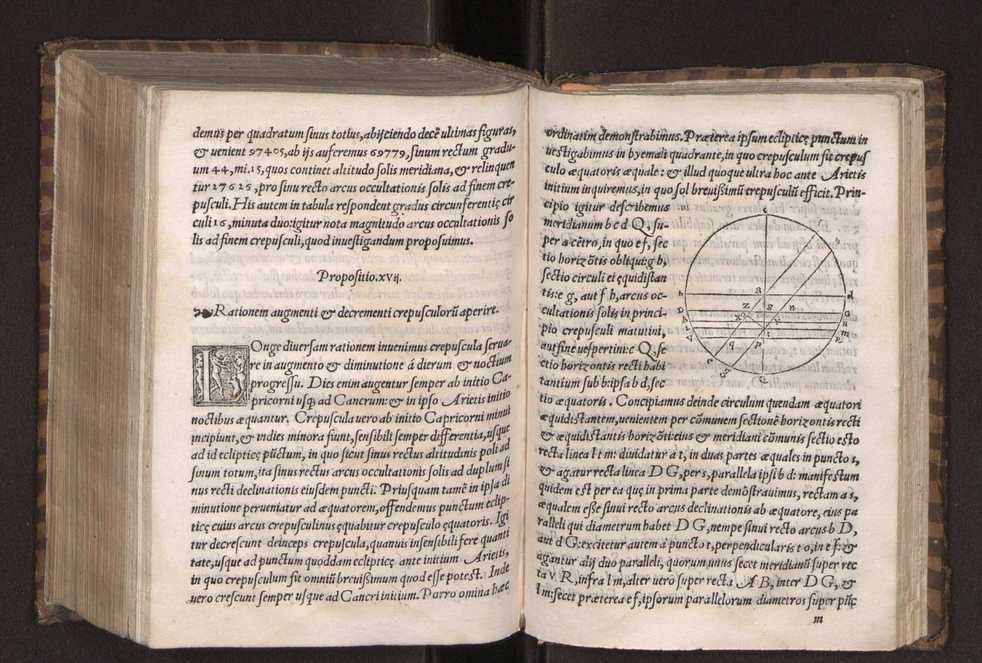 demus per quadratum sinus totius, abijciendo decē ultimas figuras,
& uenient 97405, ab ijs auferemus 69779, sinum rectum gradu-
um 44, mi. 15, quos continet altitudo solis meridiana, & relinquen
tur 27626, pro sinu recto arcus occultationis solis ad finem cre-
pusculi. His autem in tabula respondent gradus circunferentię cir
culi 16, minuta duo: igitur nota magnitudo arcus occultationis so
lis ad finem crepusculi, quod inuestigandum proposuimus.
Propositio. xvij.
Rationem augmenti & decrementi crepusculorū aperire.
LOnge diuersam rationem inuenimus crepuscula serua
re in augmento & diminutione á dierum & noctium
progressu. Dies enim augentur semper ab initio Ca-
pricorni usq; ad Cancrum: & in ipso Arietis initio
noctibus æquantur. Crepuscula uero ab initio Capricorni minui
incipiunt, & indies minora fiunt, sensibili semper differentia, usque
ad id eclipticę pūctum, in quo sicut sinus rectus altitudinis poli ad
sinum totum, ita sinus rectus arcus occultationis solis ad duplum si
nus recti declinationis eiusdem puncti. Priusquam tamē in ipsa di
minutione perueniatur ad æquatorem, offendemus punctum eclip-
ticę cuius arcus crepusculinus ęquabitur crepusculo ęquatoris. Igi
tur decrescunt deinceps crepuscula, quamuis insensibili fere quanti
tate, usque ad punctum quoddam eclipticę ante initium Arietis,
in quo crepusculum fit omniū breuissimum quod esse potest. Inde
uero crescunt semper usque ad Cancri initium. Porro omina hæc
ordinatim demonstrabimus. Præterea ipsum eclipticę punctum in
uestigabimus in hyemali quadrante, in quo crepusculum fit crepus
culo æquatoris æquale: & illud quoque ultra hoc ante Arietis
initium inquiremus, in quo sol breuissimū crepusculū efficit. Prin-
cipio igitur describemus
meridianum b c d Q, su-
per a cētro, in quo e f, sec
tio horizōtis obliqui: g h,
sectio circuli ei ęquidistan
tis: e g, aut f h, arcus oc-
cultationis solis in princi-
pio crepusculi matutini,
aut fine uespertini: c Q, se
ctio horizontis recti habi
tantium sub b: ipsa b d, sec
tio æquatoris. Concipiamus deinde circulum quendam æquatori
æquidistantem, uenientem per cōmunem sectionē horizontis recti
& æquidistantis horizōti: eius & meridiani cōmunis sectio esto
recta linea l t m: diuidatur a t, in duas partes æquales in puncto s,
& agatur recta linea D G, per s, parallela ipsi b d: manifestum
quidem est per ea quę in prima parte demōstrauimus, rectam a s,
æqualem esse sinui recto arcus declinationis ab æquatore, eius pa
ralleli qui diametrum habet D G, nempe sinui recto arcus b D,
aut d G: excitetur autem á puncto t, perpendicularis t o, in e f: &
agantur alij duo paralleli, quorum unus secet meridianū super rec
ta V R, infra l m, alter uerò super recta A B, inter D G, &
l m: secet præterea e f, ipsorum parallelorum diametros super pūc
m